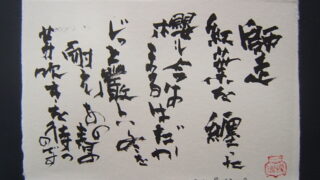 紅葉を纏った
櫻も今は
まるはだか
じっと厳しい冬を
耐え あの春の
芽吹きを待つ
のです